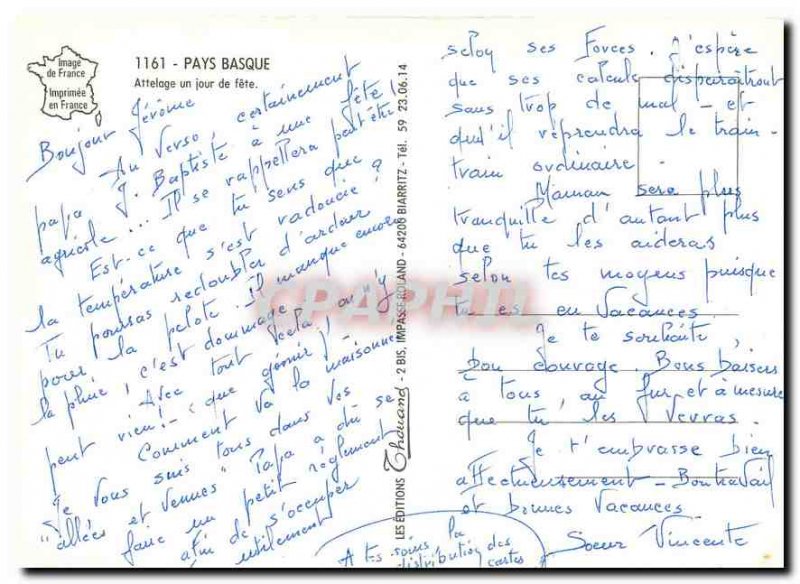 Image
de France
Imprimée
en France
1161 - PAYS BASQUE
Attelage un jour de fête.
Bonjour Jérôme
Au verso, certainement
papa J. Baptiste à une fête
agricole... Il se rappellera peut-être!
Est-ce que tu sens que
la température s'est radoucie?
Tu pourras redoubler d'ardeur
pour la pelote. Il manque encore
la pluie! c'est dommage, on n'y
peut rien! Avec tout cela
(que gémir)!
Comment va la maisonnée
Je vous suis tous dans vos
"allées et venues" Papa a dû se
faire un petit réglement
afin de s'occuper
utilement
A tes soins, la
distribution des
cartes
LES ÉDITIONS Thouand - 2 BIS, IMPASSE ROLAND - 64200 BIARRITZ - Tél. 59 23.06.14
CPAPHIL
selon ses Forces. J'espère
que ses calculs disparaîtront
sans trop de mal - et
qu'il reprendra le train-
train ordinaire.
Maman sera plus
tranquille d'autant plus
que tu les aideras
selon tes moyens puisque
tu es en Vacances.
Je te souhaite,
bon courage. Bons baisers
à tous, au fur et à mesure
que tu les verras.
Je t'embrasse bien
affectueusement - Bon travail
et bonnes Vacances
Soeur Vincente